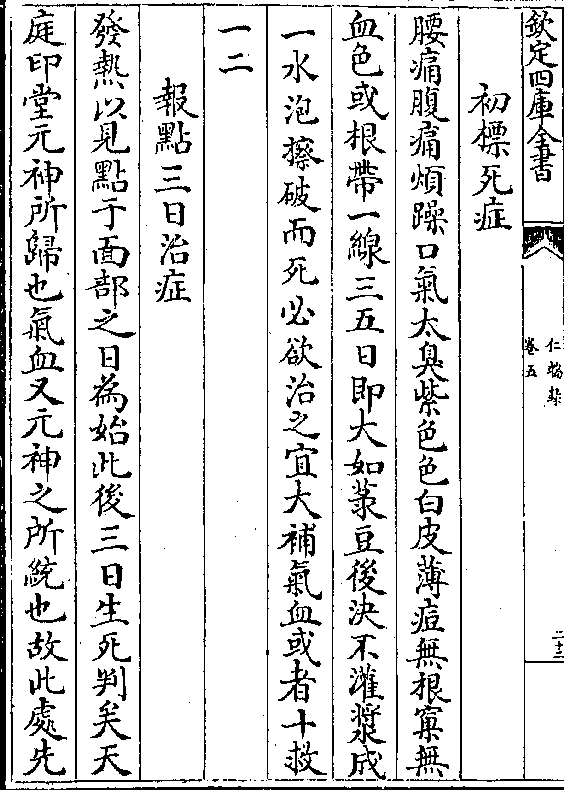 欽定四庫全書
仁端錄
卷五
二十二
初標死症
腰痛腹痛煩躁口氣太臭紫色色白皮薄痘無根窠無
血色或根帶一線三五日即大如菉豆後決不灌漿成
一水泡擦破而死必欲治之宜大補氣血或者十救
一二
報點三日治症
發熱以見點于面部之日為始此後三日生死判矣天
庭印堂元神所歸也氣血又元神之所統也故此處先